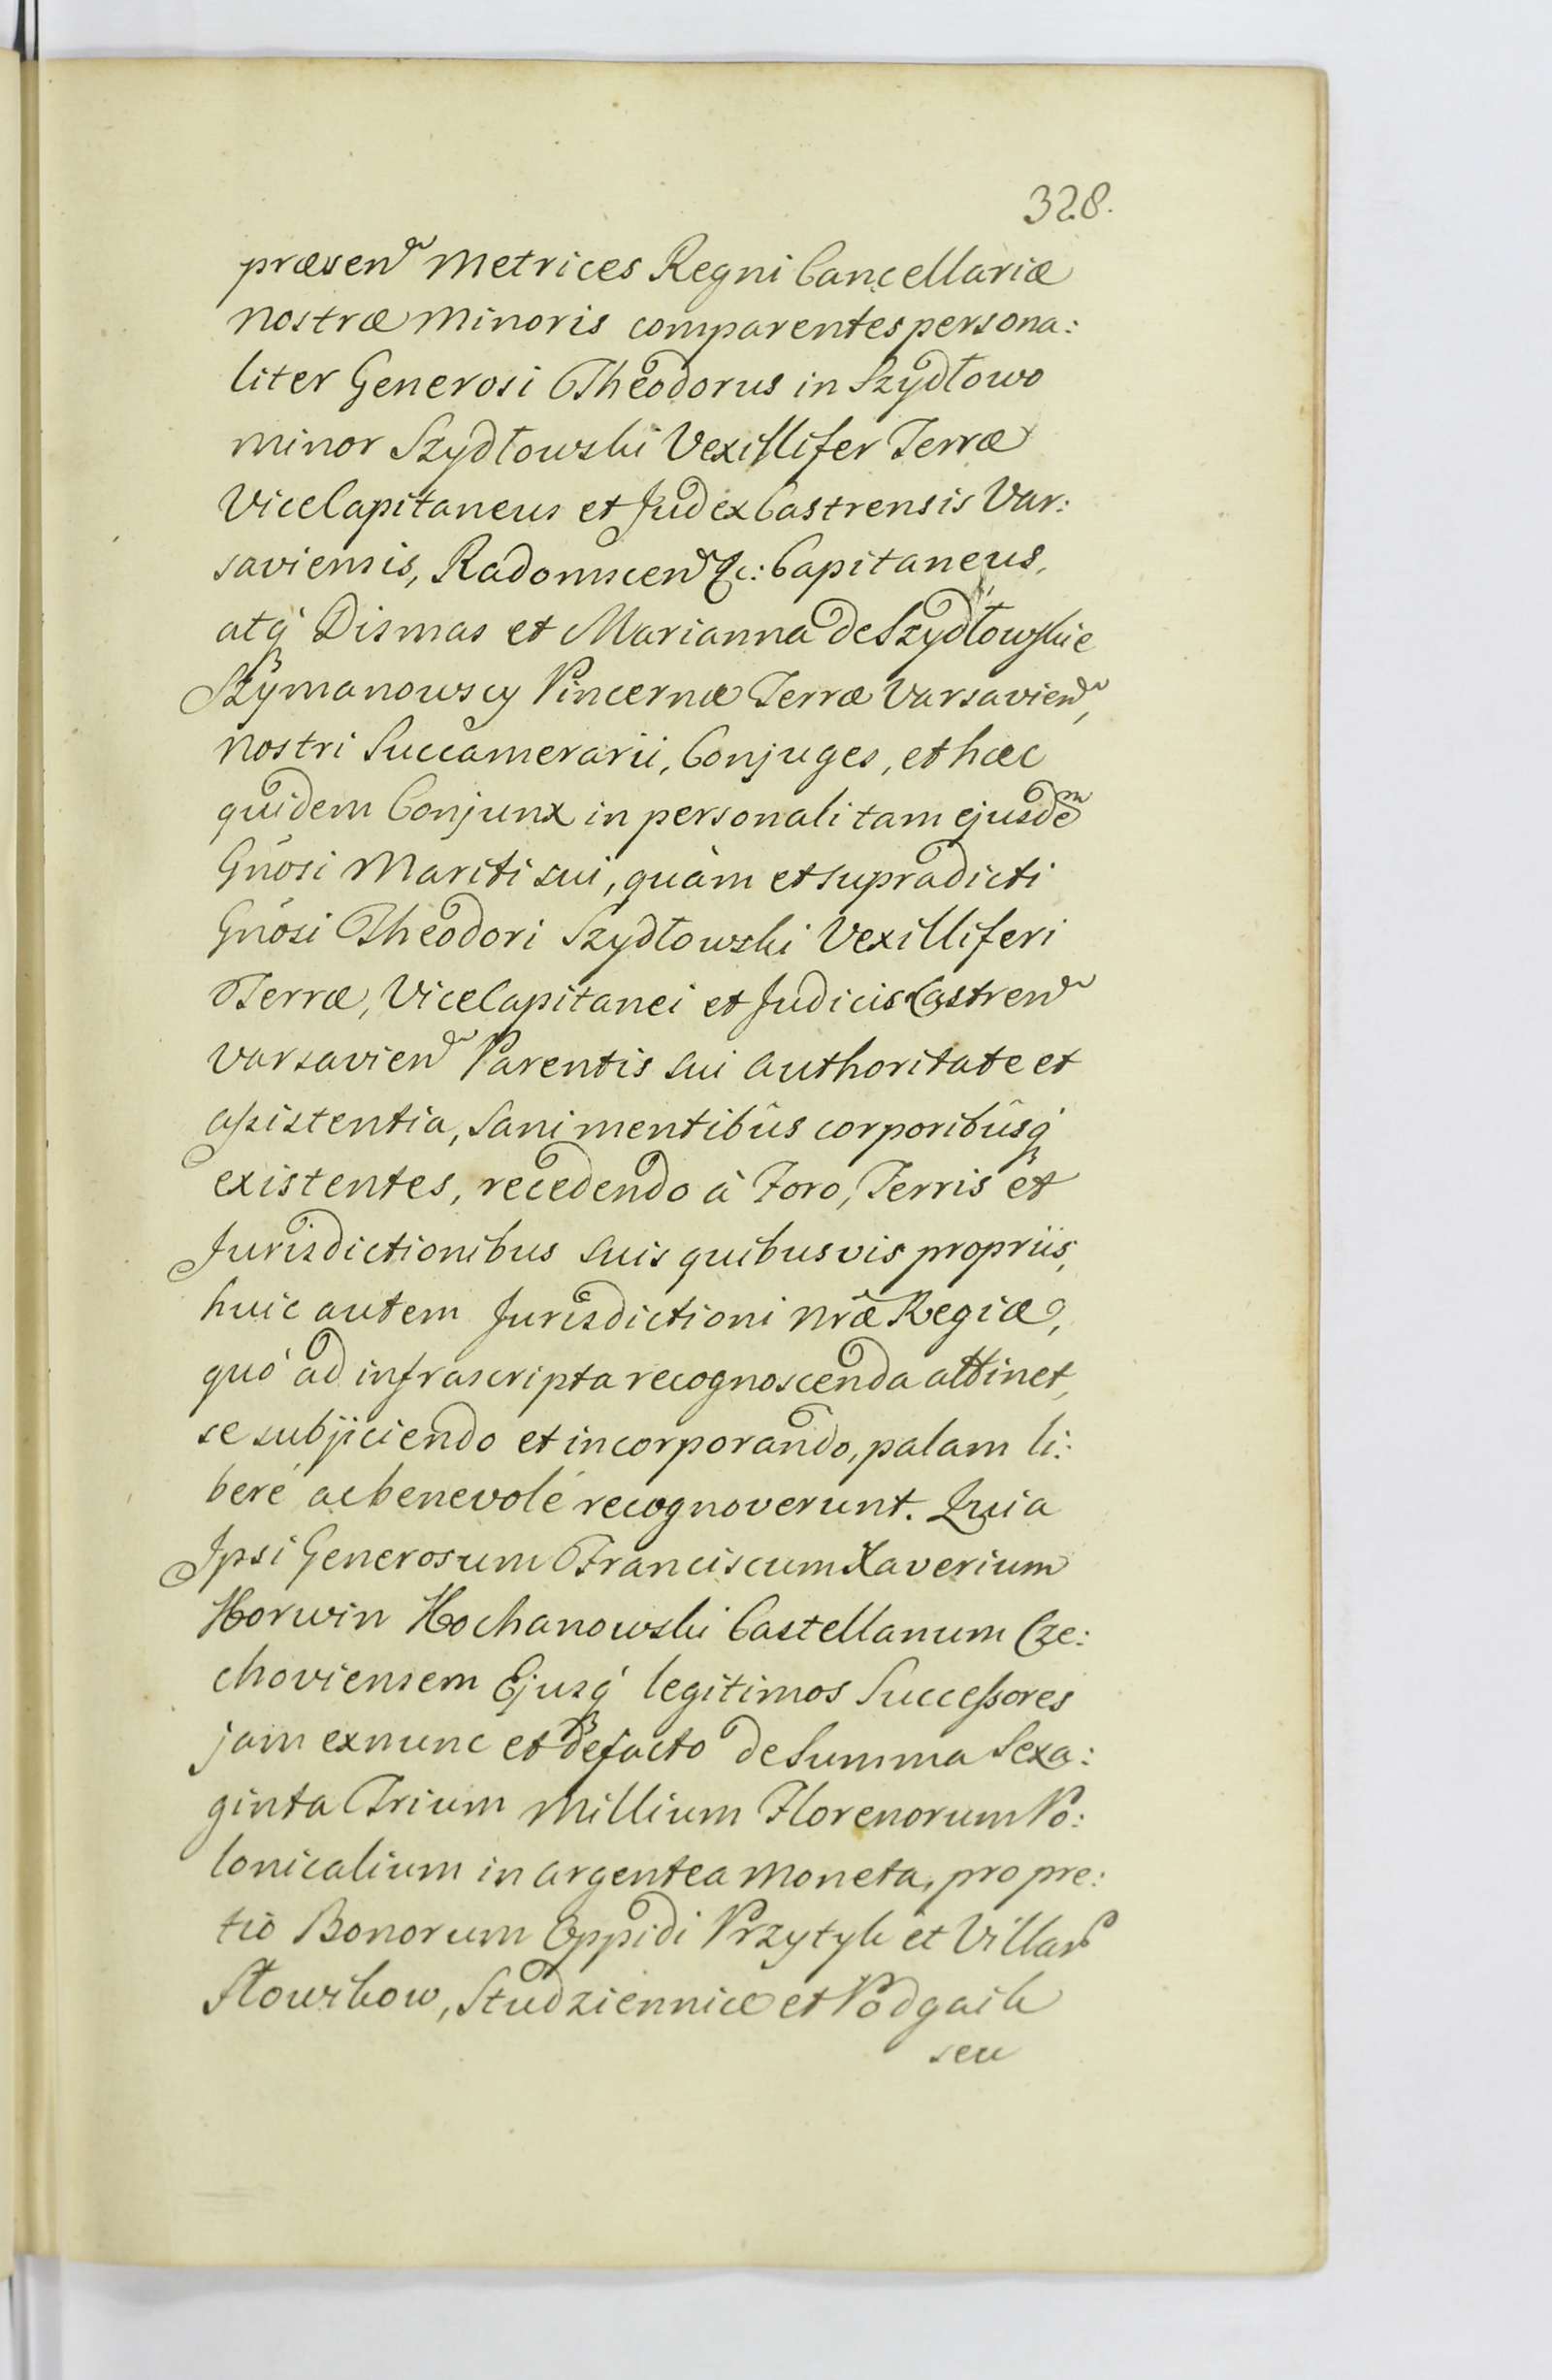 328.
præsen~ Metrices Regni Cancellariæ
nostræ Minoris comparentes persona:
liter Generosi Theodorus in Szydłowo
minor Szydłowski Vexillifer Terræ
ViceCapitaneus et Judex Castrensis Var:
saviensis, Radomscen~ &c: Capitaneus,
atq́ Dismas et Marianna de Szydłowskie
Szymanowscy Pincernæ Terræ Varsavien~,
nostri Succamerarii, Conjuges, et hæc
quidem Conjunx in personali tam ejusdem
Gńosi Mariti sui, quàm et supradicti
Gńosi Theodori Szydłowski Vexilliferi
Terræ, ViceCapitanei et Judicis Castren~
Varsavien~ Parentis sui authoritate et
assistentia, sani mentibûs corporibûsq́
existentes, recedendo à Foro, Terris et
Jurisdictionibus suis quibusvis propriis,
huic autem Jurisdictioni nræ̂ Regiæ,
quó ad infrascripta recognoscenda attinet,
se subjiciendo et incorporando, palam li:
beré ac benevolé recognoverunt. Quia
Ipsi Generosum Franciscum Xaverium
Korwin Kochanowski Castellanum Cze:
choviensem Ejusq́ legitimos Successores
jam exnunc et defacto de Summa Sexa:
ginta Trium Millium Florenorum Po:
lonicalium in argentea moneta, pro pre:
tio Bonorum Oppidi Przytyk et Villar~
Słowikow, Studziennice et Podgaik
seu